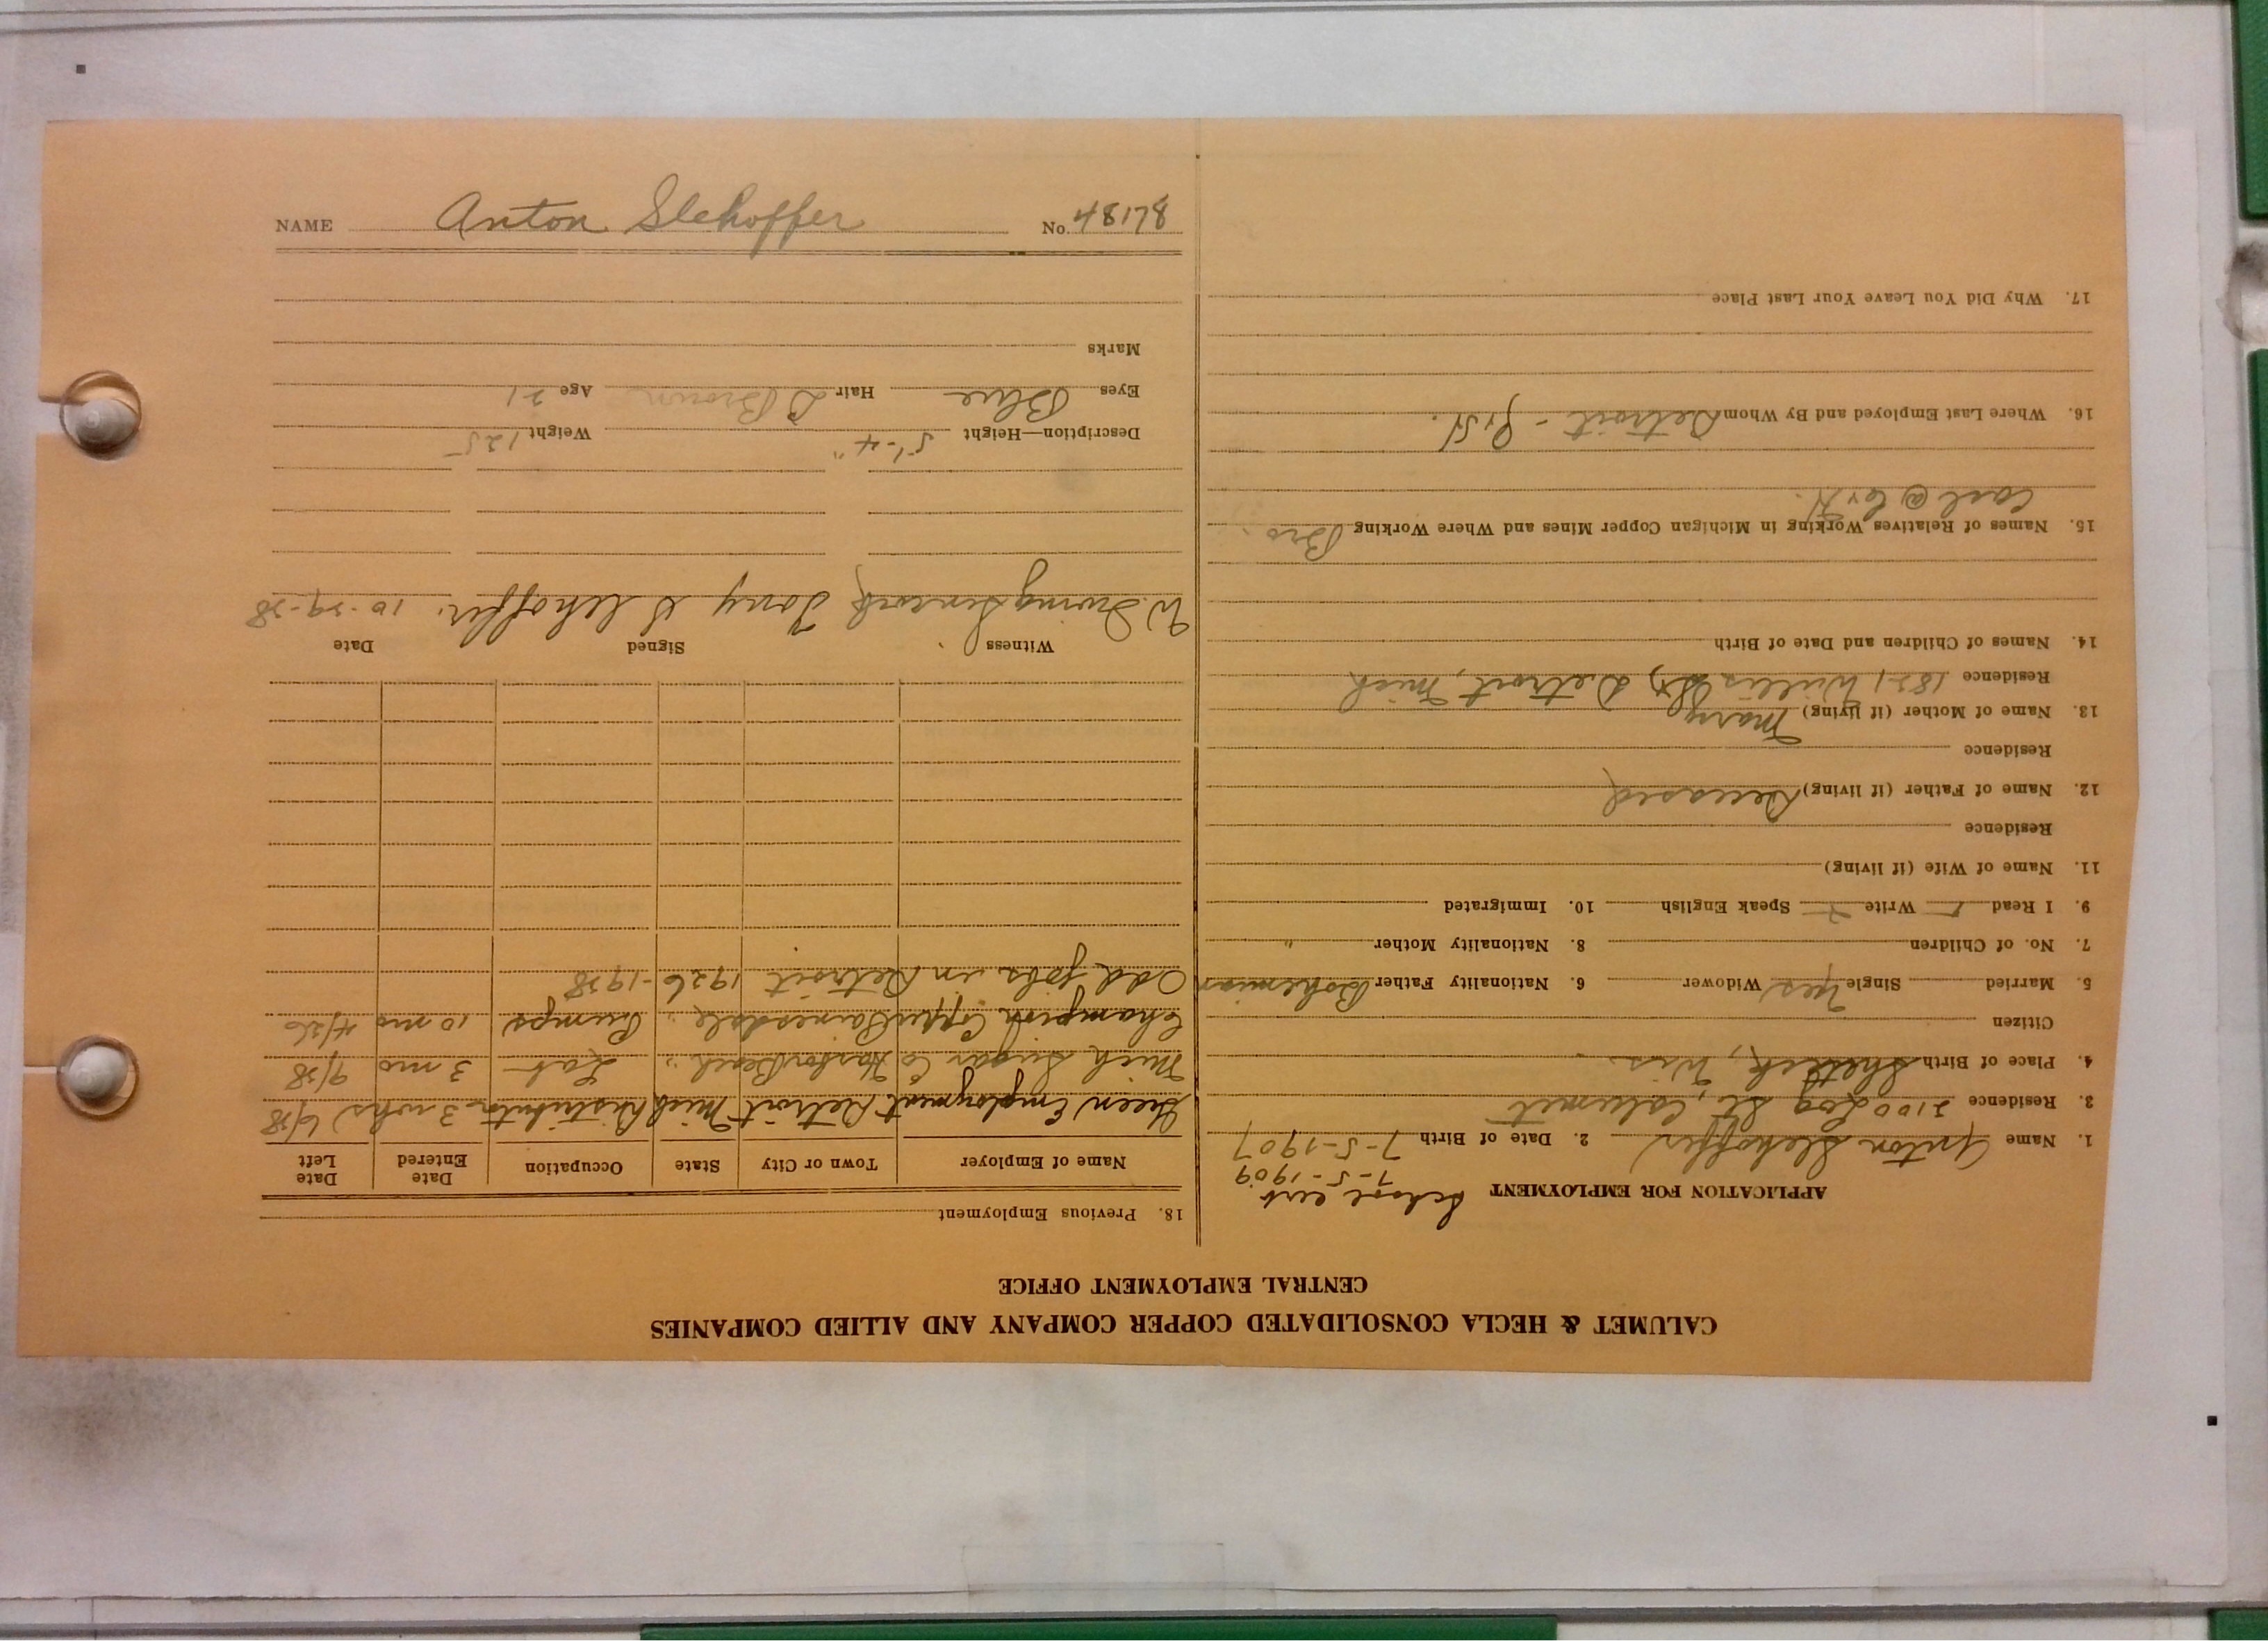 NAME Anton Slehoffer No. 48178
CALUMET & HECLA CONSOLIDATED COPPER COMPANY AND ALLIED COMPANIES
CENTRAL EMPLOYMENT OFFICE
APPLICATION FOR EMPLOYMENT
7-5-1909
1. Name Anton Slehoffer 2. Date of Birth 7-5-1907
3. Residence 2100 Log St., Calumet
4. Place of Birth Wis.
Citizen
5. Married Single Yes Widower 6. Nationality Father Bohemian
7. No. of Children 8. Nationality Mother "
9. I Read Write Speak English 10. Immigrated
11. Name of Wife (if living)
Residence
12. Name of Father (if living) Deceased
Residence
13. Name of Mother (if living) Mary
Residence 1821 Willis St., Detroit, Mich
14. Names of Children and Date of Birth
15. Names of Relatives Working in Michigan Copper Mines and Where Working Bro.
Carl @
16. Where Last Employed and By Whom Detroit -
17. Why Did You Leave Your Last Place
18. Previous Employment
Name of Employer Town or City State Occupation Date Entered Date Left
Green Employment Detroit Mich Distributor 3 wks 6/28
Mich Sugar Co Harbor Beach " Lab 3 mo 9/28
Champion Copper Painesdale " Pumps 10 mo 4/26
Odd jobs in Detroit 1926-1928
Witness Signed Date
W. Tony Slehoffer. 10-29-28
Description—Height 5'-4" Weight 125
Eyes Blue Hair D Brown Age 21
Marks